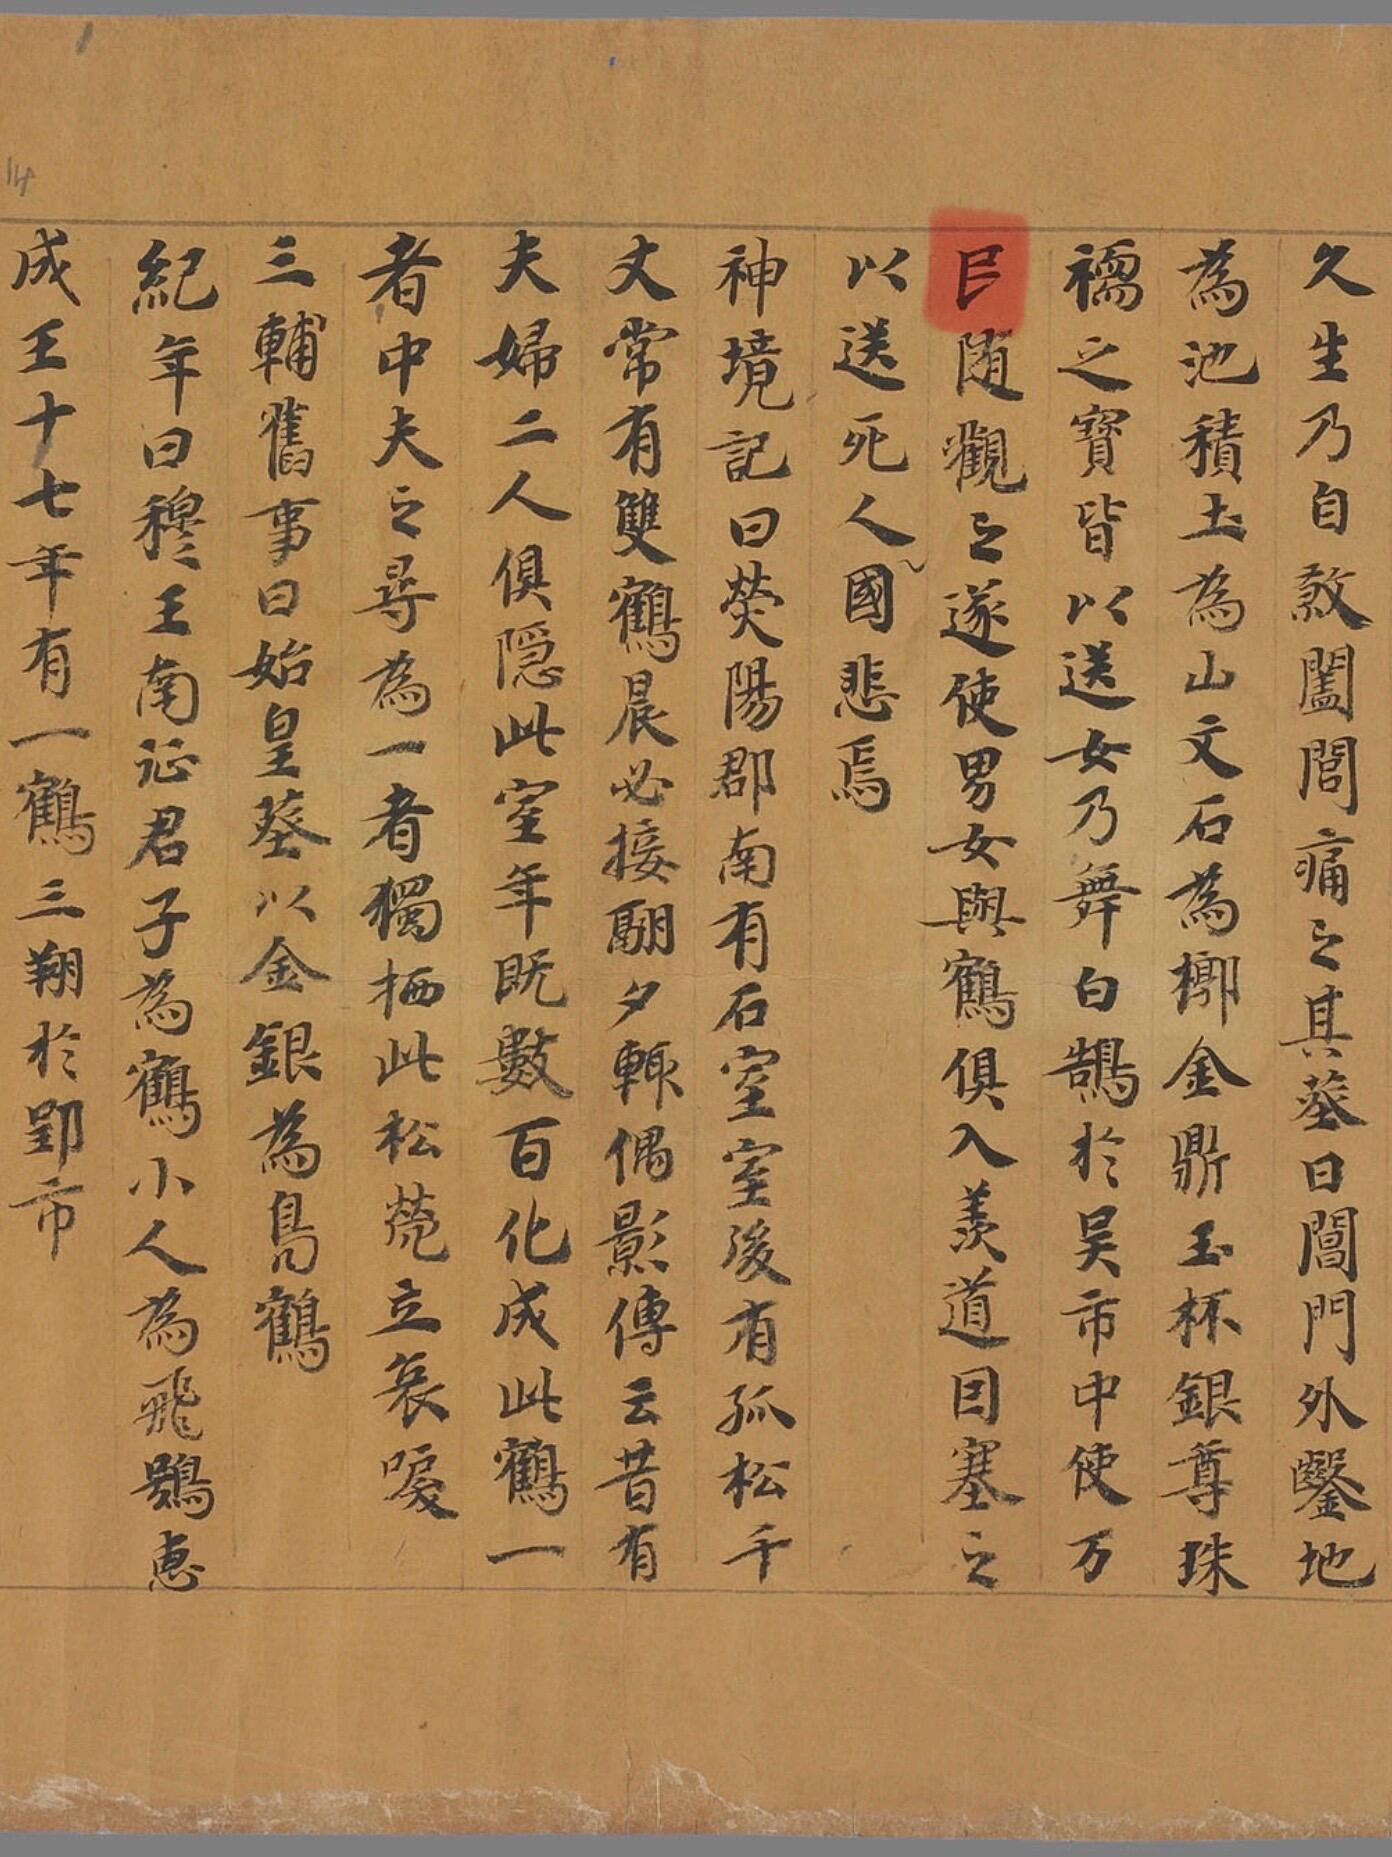 久生乃自煞闔閭痛之其葬曰閶門外鑿地
為池積土為山文石為槨金鼎玉杯銀尊珠
襦之寶皆以送女乃舞白鵠於吴市中使万
民随觀之遂使男女與鶴俱入羨道囙塞之
以送死人國悲焉
神境記曰熒陽郡南有石室室後有孤松千
丈常有雙鶴晨必接翮夕輙偶影傳云昔有
夫婦二人俱隱此室年既數百化成此鶴一
者中夫之尋為一者獨栖此松莞立哀唳
三輔舊事曰始皇葬以金銀為鳧鶴
紀年曰穆王南征君子為鶴小人為飛鴞恵
成王十七年有一鶴三翔於郢市
14